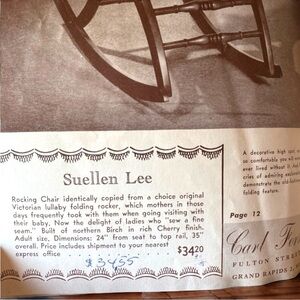 Suellen Lee
Rocking Chair identically copied from a choice original
Victorian lullaby folding rocker, which mothers in those
days frequently took with them when going visiting with
their baby. Now the delight of ladies who "sew a fine
seam." Built of northern Birch in rich Cherry finish.
Adult size, Dimensions: 24" from seat to top rail, 35"
overall. Price includes shipment to your nearest
express office
$34.20
$34.55
A decorative high
so comfortable you will
ever lived without it. And
cries of admiring
demonstrate the
folding feature.
Page 12
Carl
FULTON STREET
GRAND RAPIDS 2,